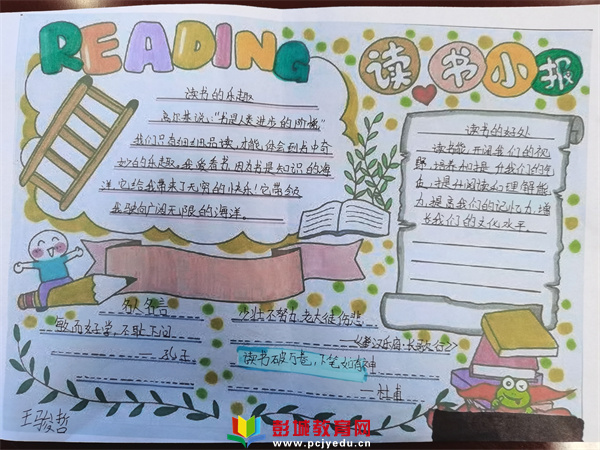 READING
读书小报
读书的乐趣
高尔基说:“书是人类进步的阶梯”
我们只有细细品读,才能体会到书中奇
妙的乐趣。我爱看书,因为书是知识的海
洋,它给我带来了无穷的快乐!它带领
我驶向广阔无限的海洋。
读书的好处
读书能开阔我们的视
野,培养和提升我们的气
质,提升阅读和理解能
力,提高我们的记忆力,增
长我们的文化水平
名人名言
敏而好学,不耻下问
——孔子
少壮不努力,老大徒伤悲
——《汉乐府·长歌行》
读书破万卷,下笔如有神
杜甫
王骏哲
彭城教育网
www.pcjyedu.cn